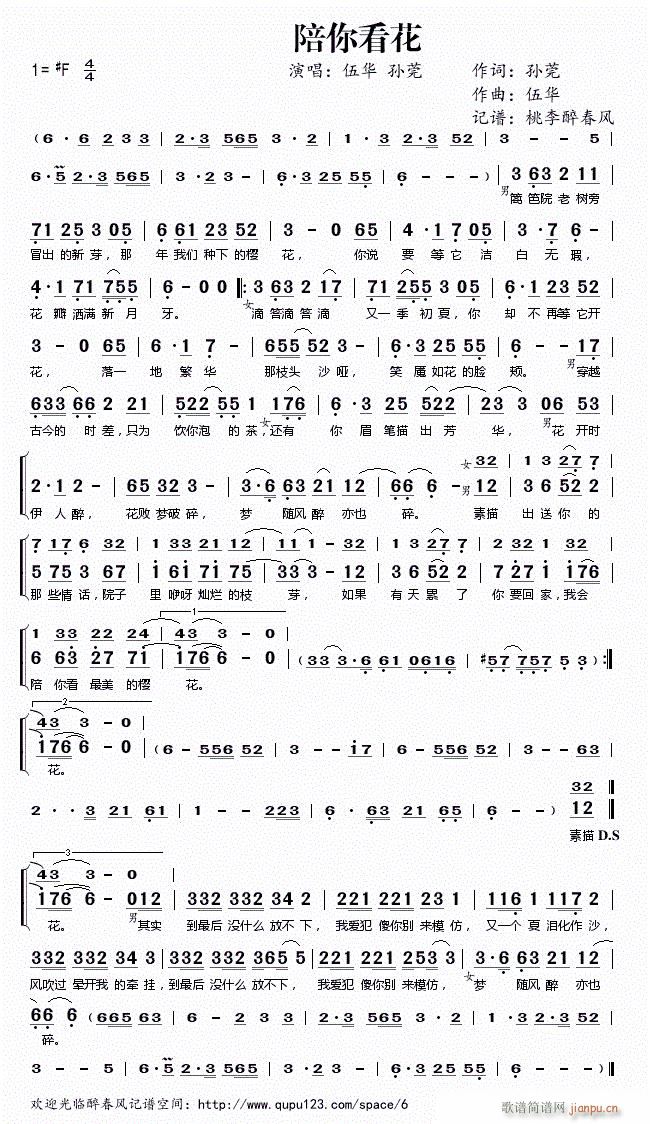 陪你看花
1=♯F 4/4
演唱：伍华 孙莞 作词：孙莞
作曲：伍华
记谱：桃李醉春风
(6·6 2 3 3 | 2·3 565 3·2 | 1·3 2·3 52 | 3 - - 5
6·5 2·3 565 | 3·23 2 - | 6·3 25 55 | 6 - - - ) | 3 63 2 11
男 篱笆院老树旁
71 25 3 05 | 6 61 23 52 | 3 - 0 65 | 4·1 7 05 | 3·7 6 -
冒出的新芽，那 年我们种下的樱 花， 你说 要 等它 洁 白 无 瑕，
4·1 71 755 | 6 - 0 0 ‖: 3 63 2 17 | 71 255 3 05 | 6·1 23 52
花 瓣洒满新月 牙。 女 滴答滴答滴 又一季初夏，你 却 不再等它开
3 - 0 65 | 6·1 7 - | 655 52 3 - | 6·3 25 55 | 6 - - 17
花， 落一 地 繁 华 那枝头 沙 哑， 笑 靥如花的脸 颊。 男 穿越
633 66 2 21 | 522 55 1 176 | 6·3 25 522 | 23 3 06 53
古今的 时 差，只为 饮你泡 的 茶，女 还有 你 眉笔描出芳 华， 男 花开时
女 32 | 1 3 27 7
2·1 2 - | 65 32 3 2 - | 3·6 63 21 12 | 66 6 - 男 12 | 3 6 52 2
伊 人 醉， 花败 梦破 碎， 梦 随风 醉 亦也 碎。 素描 出 送 你 的
7 17 6 32 | 1 33 21 12 | 11 1 - 32 | 1 3 27 7 | 2 32 1 51
5 75 3 67 | 1 61 71 75 | 33 3 - 12 | 3 6 52 2 | 7 27 1 176
那 些情 话，院子 里 咿呀 灿烂 的枝 芽， 如果 有 天 累 了 你 要回 家，我会
1 33 22 24 | 43 3 - 0 |
1
6 63 27 71 | 176 6 - 0 | (33 3·6 61 0616 | ♯57 757 5 3) :‖
陪 你看 最美 的樱 花。
2
43 3 - 0 |
176 6 - 0 | (6 - 556 52 | 3 - - 17 | 6 - 556 52 | 3 - - 63
花。
2··3 21 61 | 1 - - 223 | 6·63 21 65 | 6 - - ) 32 12 ‖
素描 D.S
3
43 3 - 0 |
176 6 - 男 012 | 332 332 34 2 | 221 221 23 1 | 116 1 117 2
花。 其实 到最后 没什么 放不 下，我爱犯 傻你别 来模 仿， 又一个 夏 泪化作 沙，
332 332 34 3 | 332 332 365 5 | 221 221 253 3 | 女 3·6 63 21 12
风吹过 晕开我 的牵 挂，到最后 没什么 放不 下，我爱犯 傻你别 来模仿， 梦 随风 醉 亦也
66 6 (665 653 | 6 - 2 3 3 | 2·3 565 3·2 | 1·3 2·3 52
碎。
3 - - 5 | 6·5 2·3 565 | 3·23 2 - | 6·3 25 55 | 6 - - - )
欢迎光临醉春风记谱空间：http://www.qupu123.com/space/6
歌谱简谱网
jianpu.cn